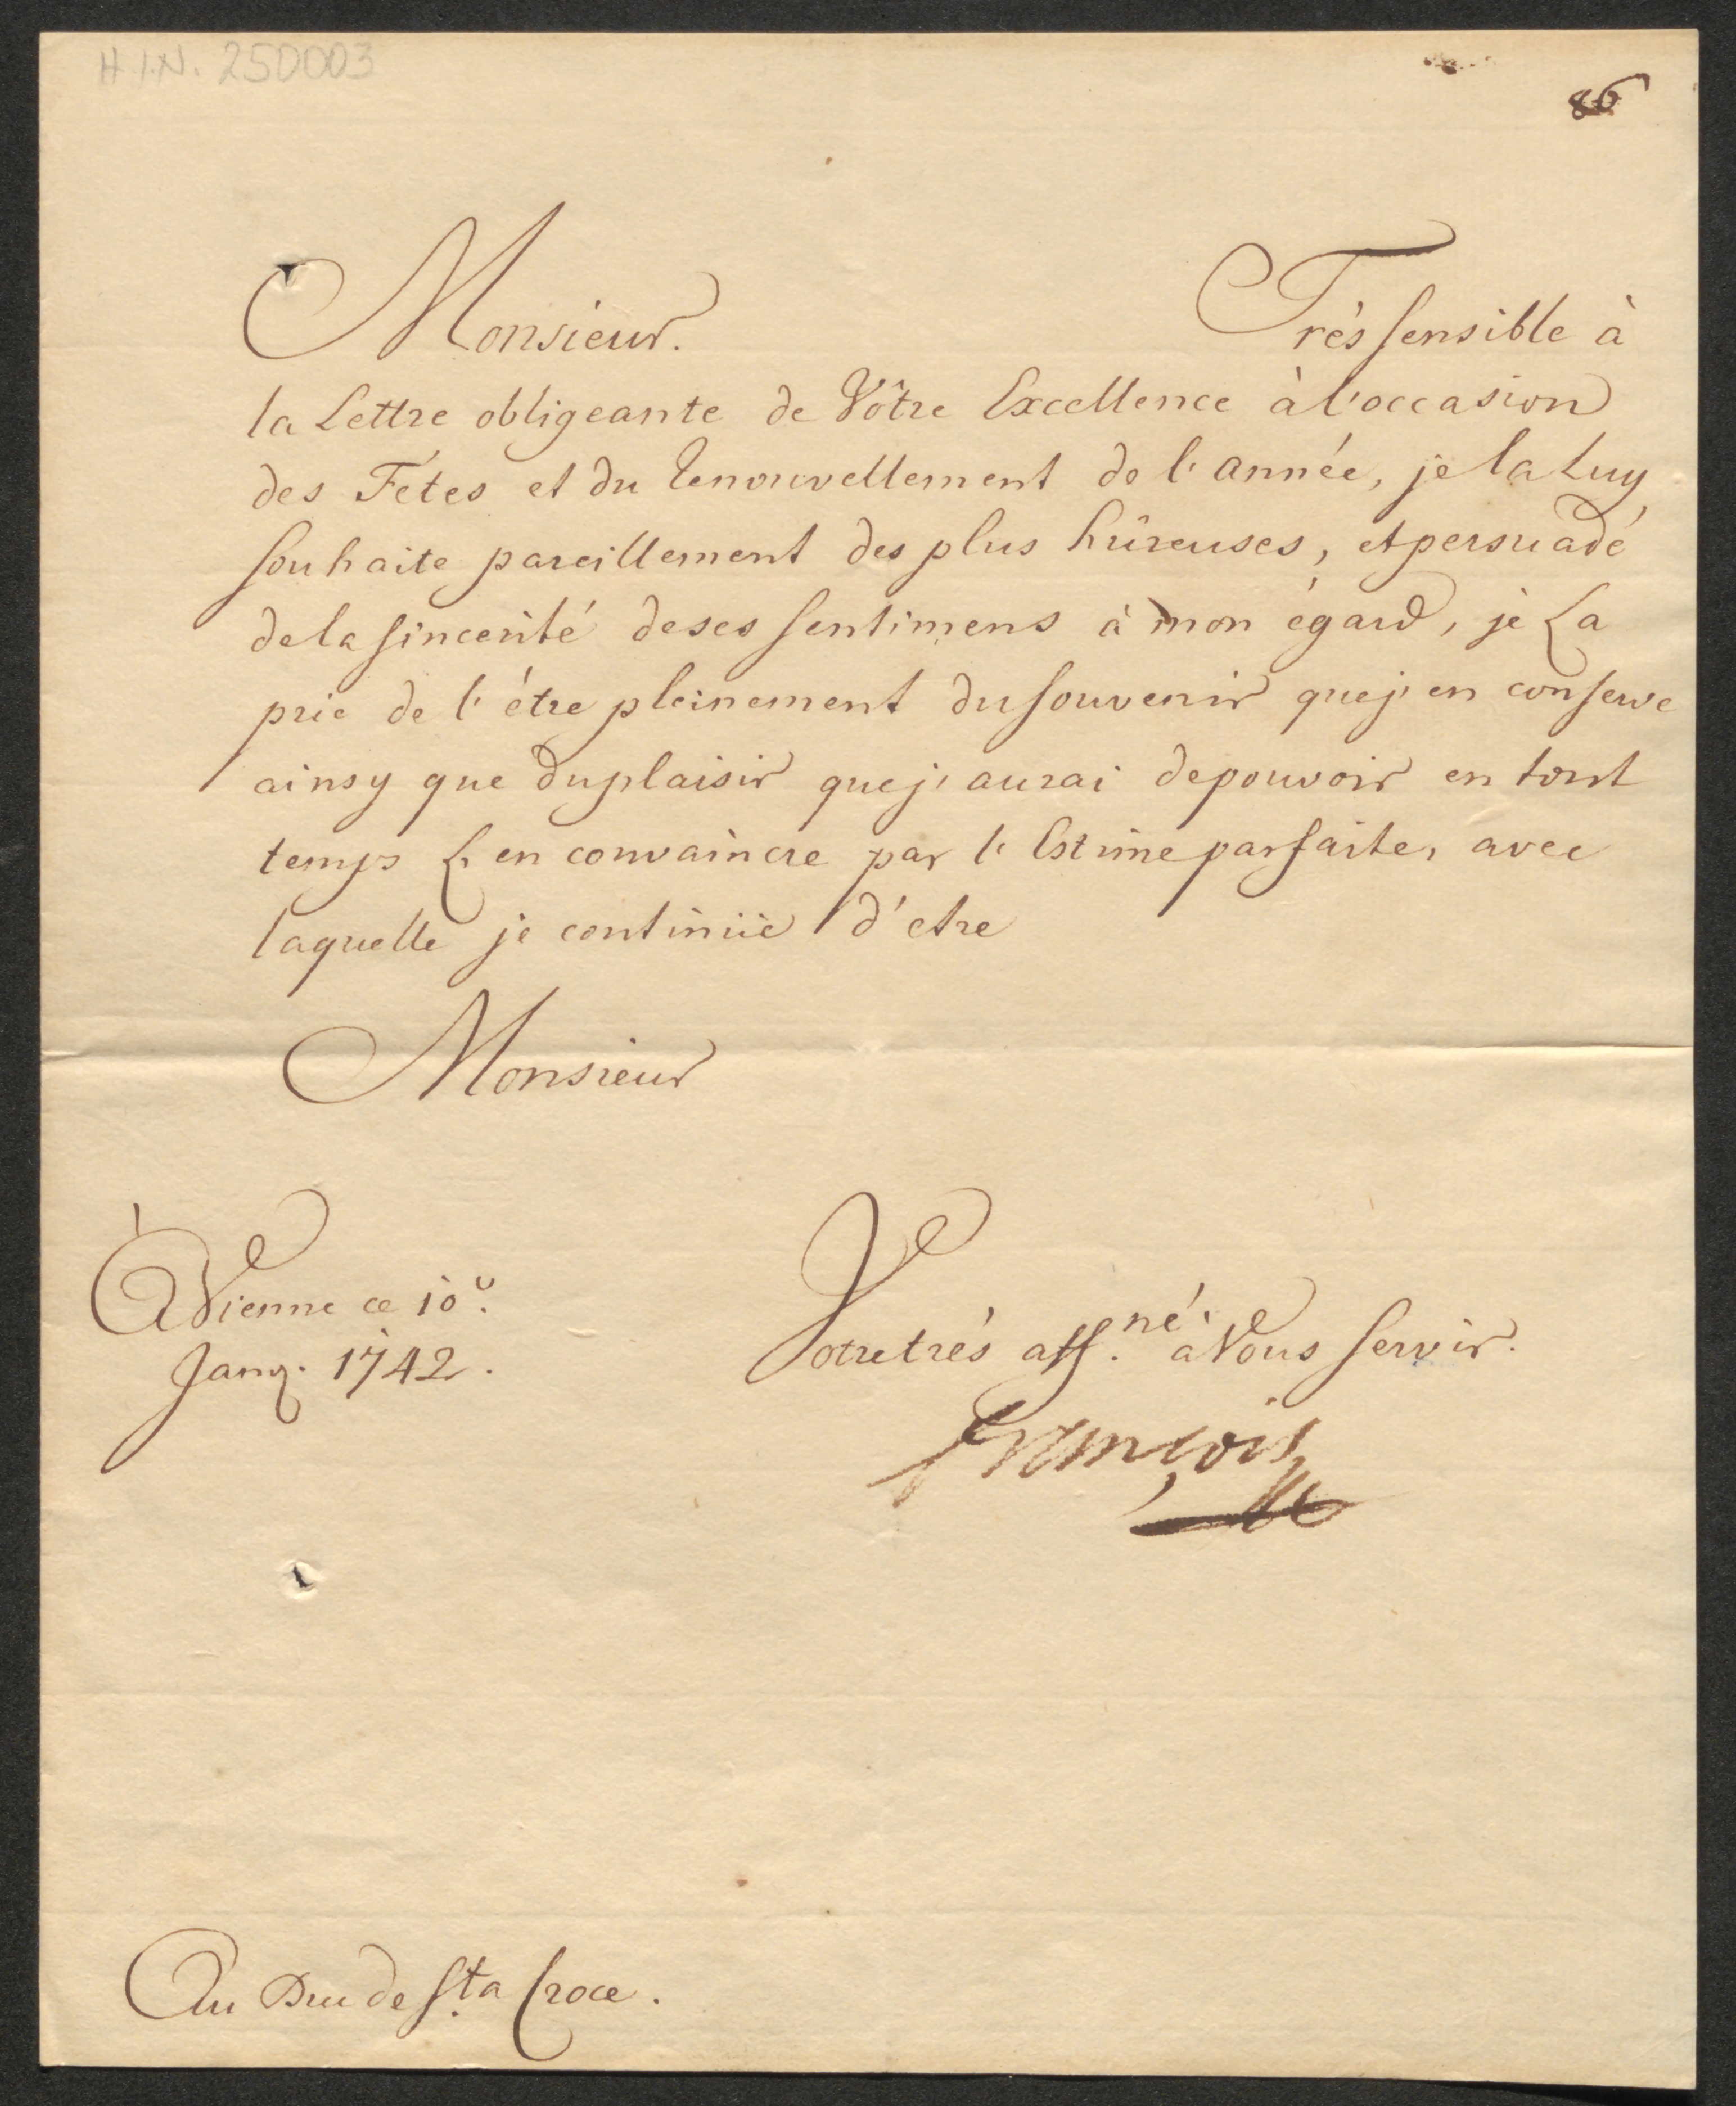 H.I.N. 250003
86
Monsieur. Trés sensible à
la Lettre obligeante de Vôtre Excellence à l'occasion
des Fétes et du Renouvellement de l'année, je la Luy
souhaite pareillement des plus hûreuses, et persuadé
de la sincerité de ses sentimens à mon égard, je La
prie de l'étre pleinement du souvenir que j'en conserve
ainsy que du plaisir que j'aurai de pouvoir en tout
temps L'en convaincre par l'Estime parfaite, avec
laquelle je continüe d'etre
Monsieur
À Vienne ce 10e.
Janv. 1742.
Votre trés aff.né à Vous servir.
François
Au Duc de Sta Croce.